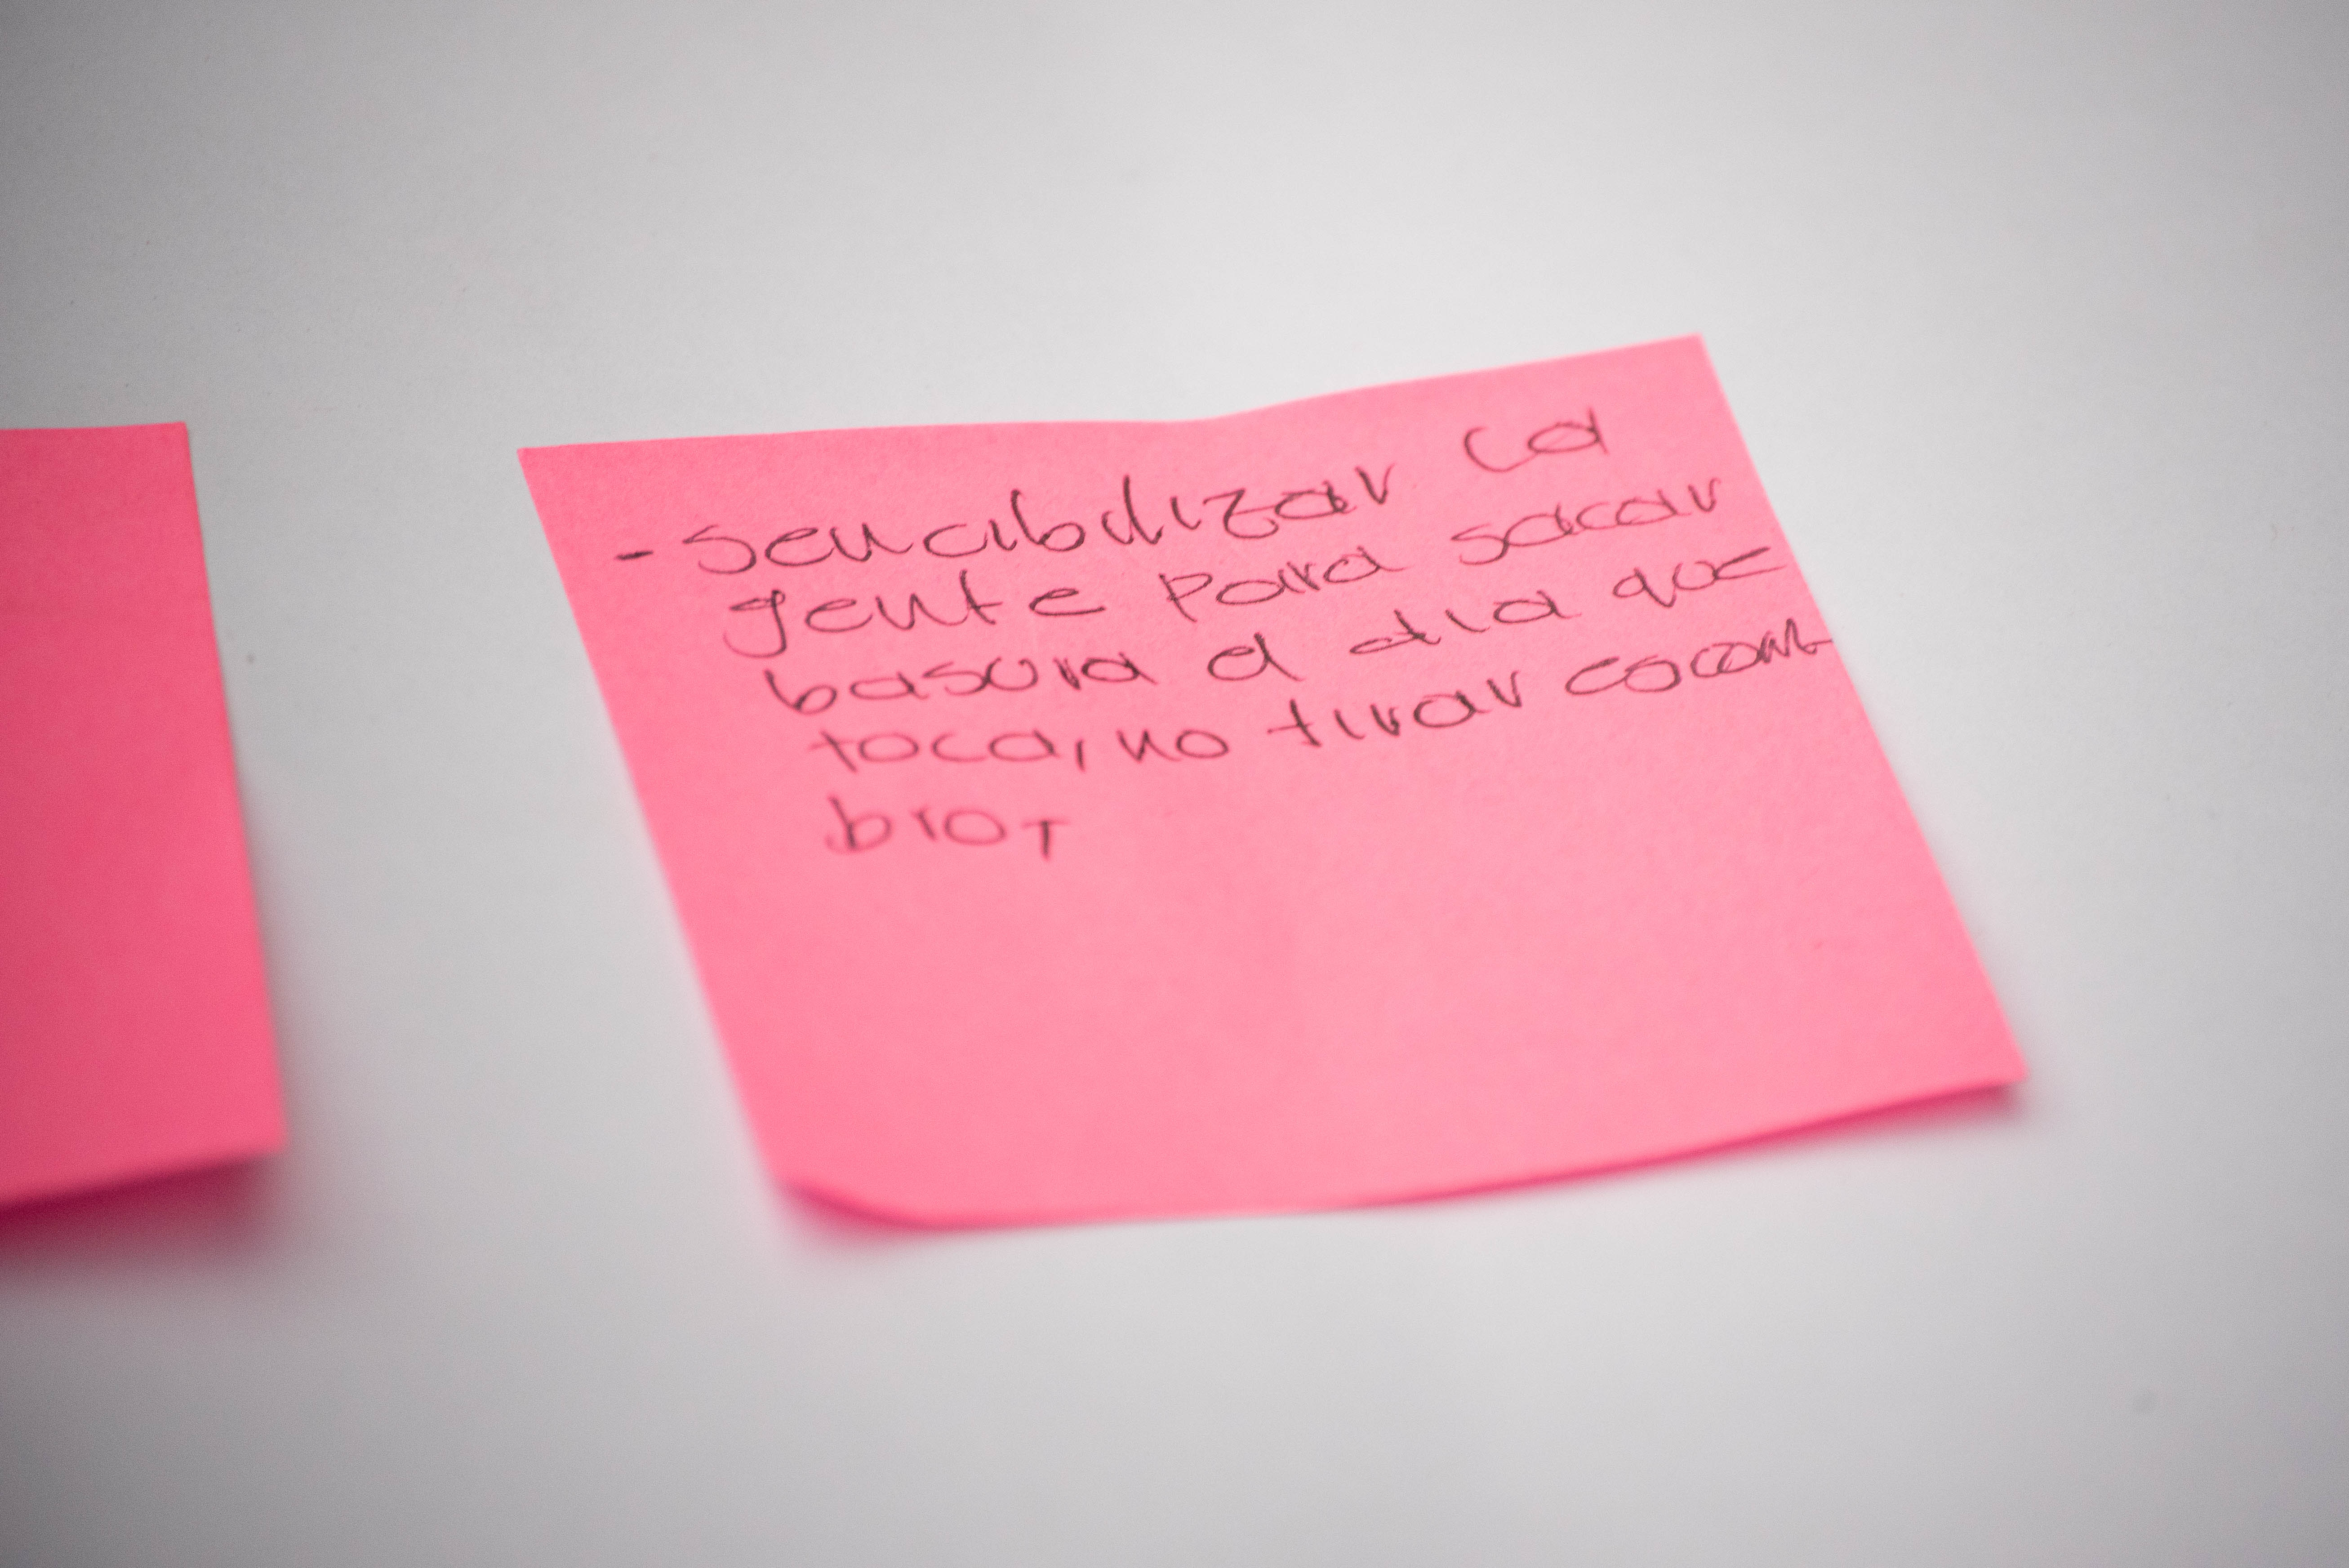 - sencibilizar la
gente para sacar
basura a dia que
toca, no tirar escom-
bro,